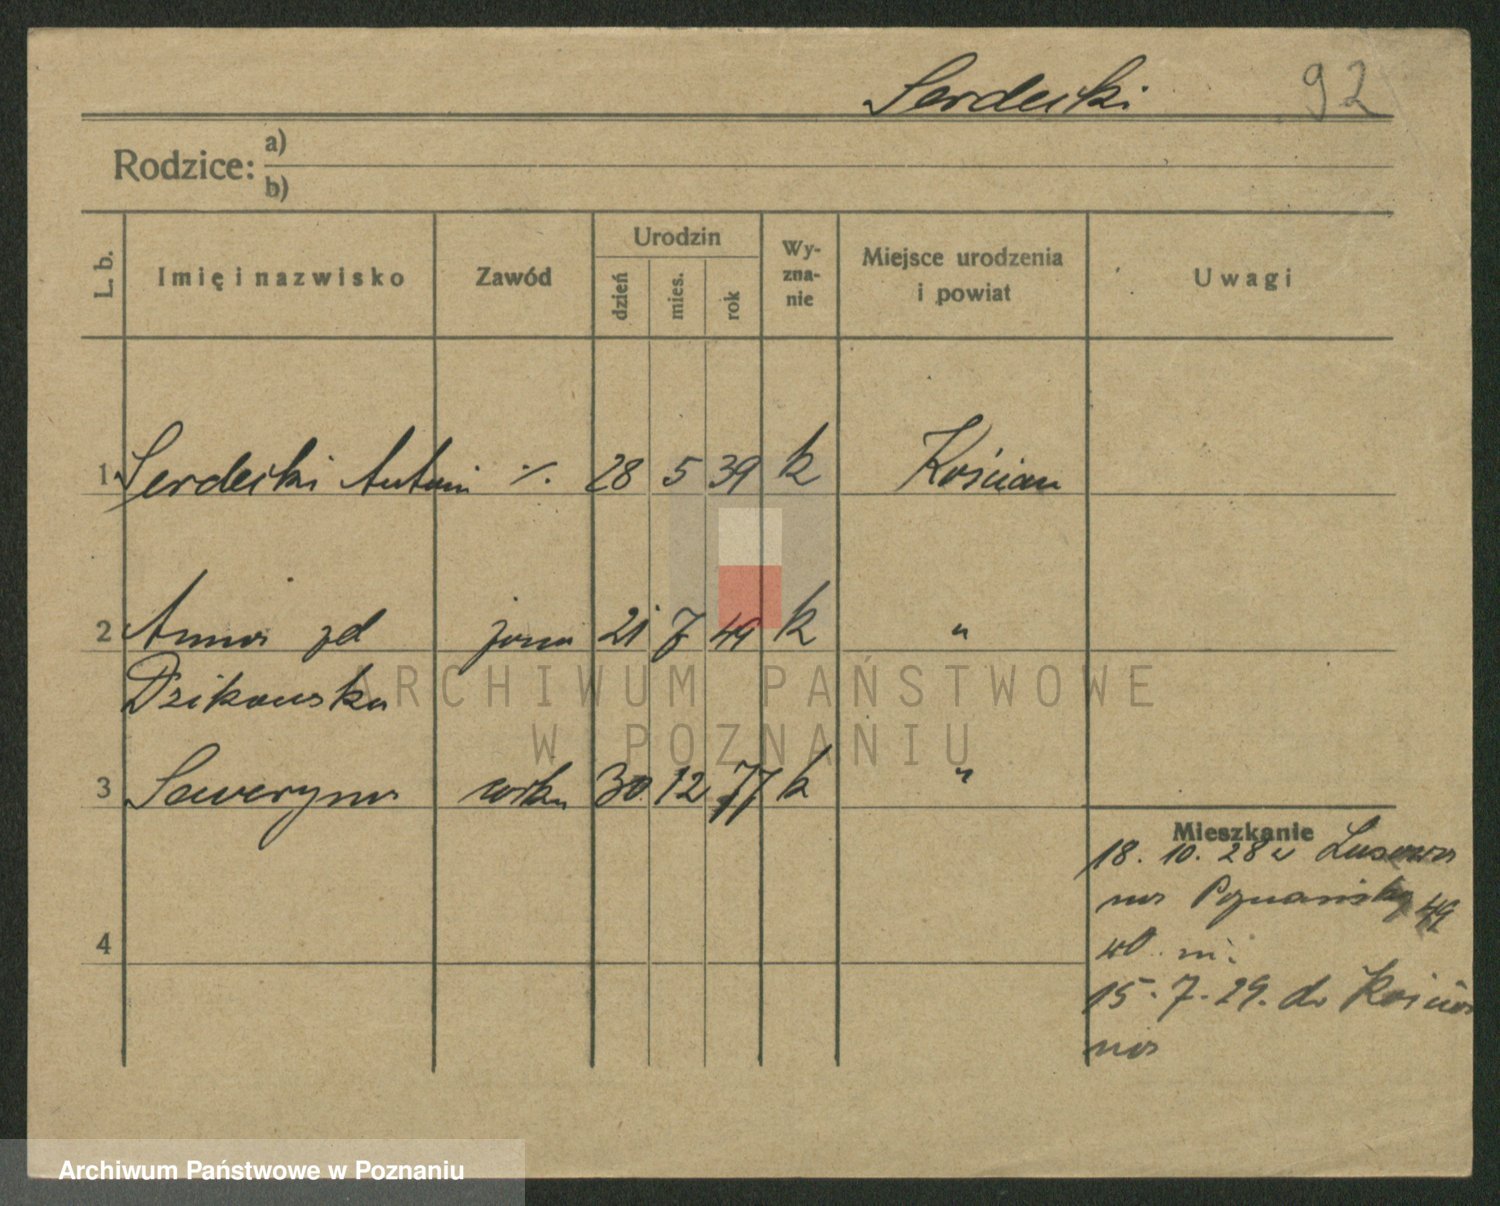 Serdecki 92
Rodzice: a)
b)
L. b. Imię i nazwisko Zawód Urodzin dzień mies. rok Wy-zna-nie Miejsce urodzenia i powiat Uwagi
1 Serdecki Antoni ./. 28 5 39 k Kościan
2 Anna zd żona 21 7 49 k "
Dzikowska
3 Seweryna córka 30 12 77 k "
Mieszkanie
18. 10. 28 z Lusowa
na Poznańską 49
4
15. 7. 29. do Kościa
na
ARCHIWUM PAŃSTWOWE
W POZNANIU
Archiwum Państwowe w Poznaniu